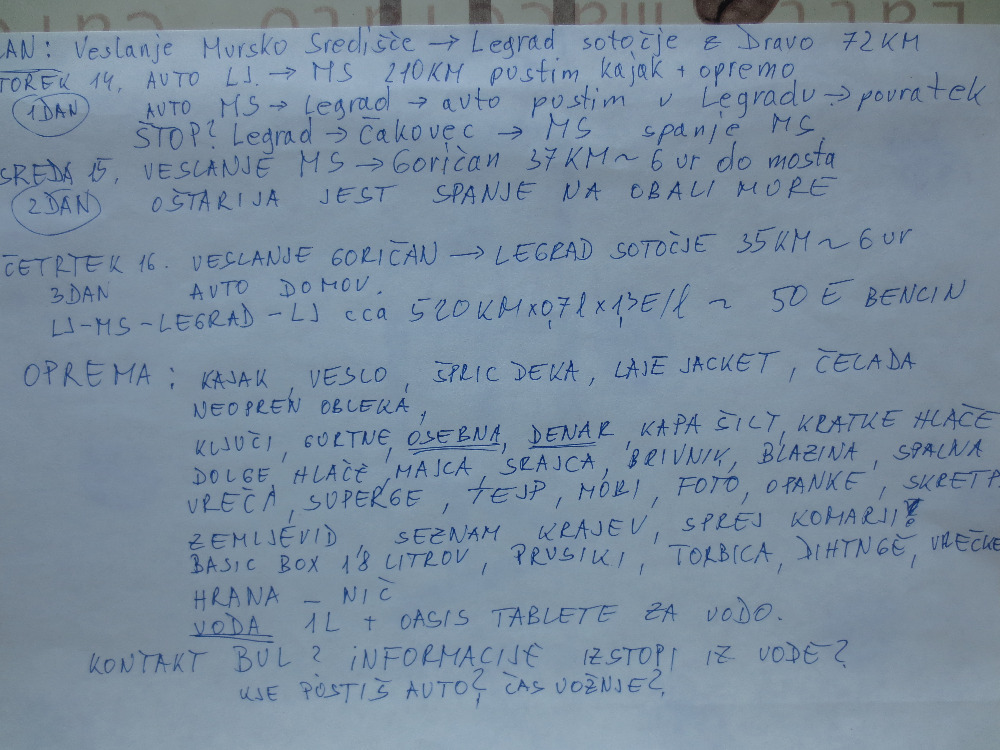 AN: Veslanje Mursko Središče → Legrad sotočje z Dravo 72KM
TOREK 14. AUTO LJ. → MS 210KM pustim kajak + opremo
1DAN AUTO MS → Legrad → avto pustim v Legradu → povratek
STOP? Legrad → Čakovec → MS spanje MS.
SREDA 15. VESLANJE MS → Goričan 37KM ~ 6 ur do mosta
2DAN OŠTARIJA JEST SPANJE NA OBALI MURE
ČETRTEK 16. VESLANJE GORIČAN → LEGRAD SOTOČJE 35KM ~ 6 ur
3DAN AUTO DOMOV.
LJ-MS-LEGRAD-LJ cca 520KM x 0,7l x 1,3E/l ~ 50 E BENCIN
OPREMA: KAJAK, VESLO, ŠPRIC DEKA, LAJF JACKET, ČELADA
NEOPREN OBLEKA,
KLJUČI, GURTNE, OSEBNA, DENAR, KAPA ŠILT, KRATKE HLAČE
DOLGE HLAČE, MAJCA, SRAJCA, BRIVNIK, BLAZINA, SPALNA
VREČA, SUPERGE, TEJP, MOBI, FOTO, OPANKE, SKRETP
ZEMLJEVID, SEZNAM KRAJEV, SPREJ KOMARJI!
BASIC BOX 1'8 LITROV, PRUSIKI, TORBICA, DIHTNGE, VREČKE
HRANA - NIČ
VODA 1L + OASIS TABLETE ZA VODO.
KONTAKT BUL? INFORMACIJE IZSTOPI IZ VODE?
KJE POSTIŠ AUTO?, ČAS VOŽNJE?,